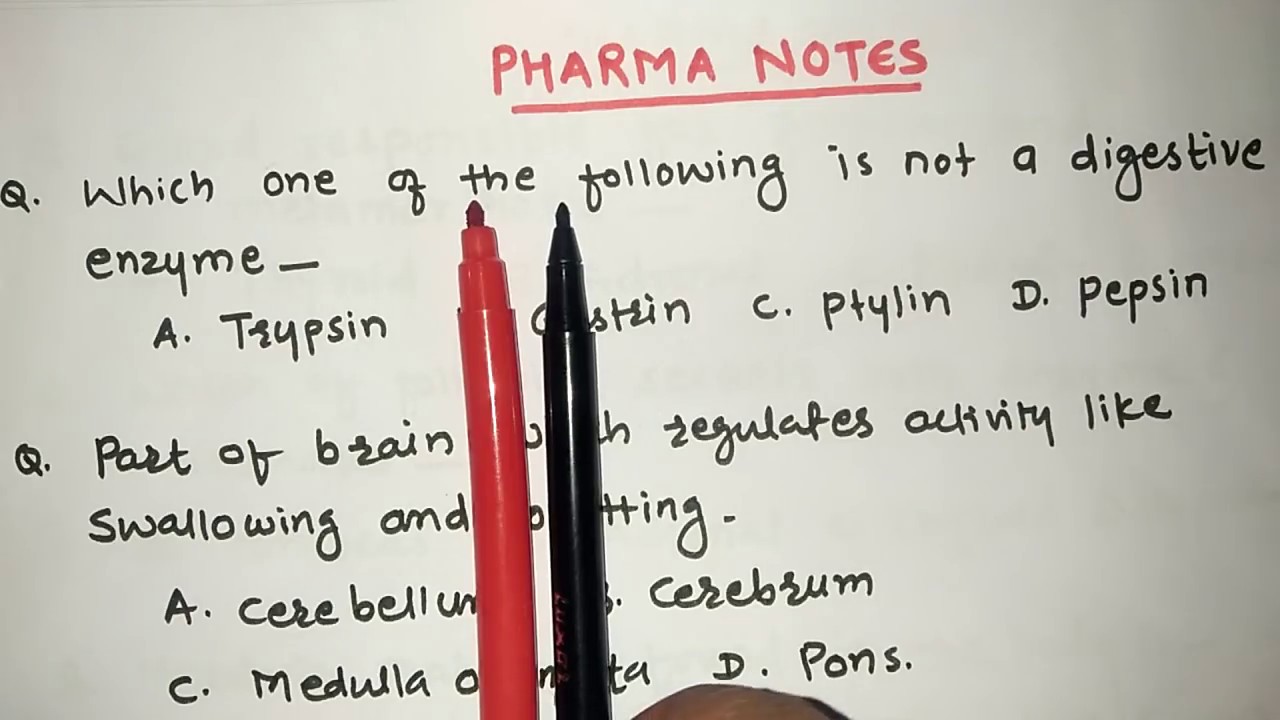 PHARMA NOTES
Q. Which one of the following is not a digestive
enzyme —
A. Trypsin C. Ptylin D. Pepsin
Q. Part of brain regulates activity like
Swallowing and
A. Cerebellum B. Cerebrum
C. Medulla D. Pons.